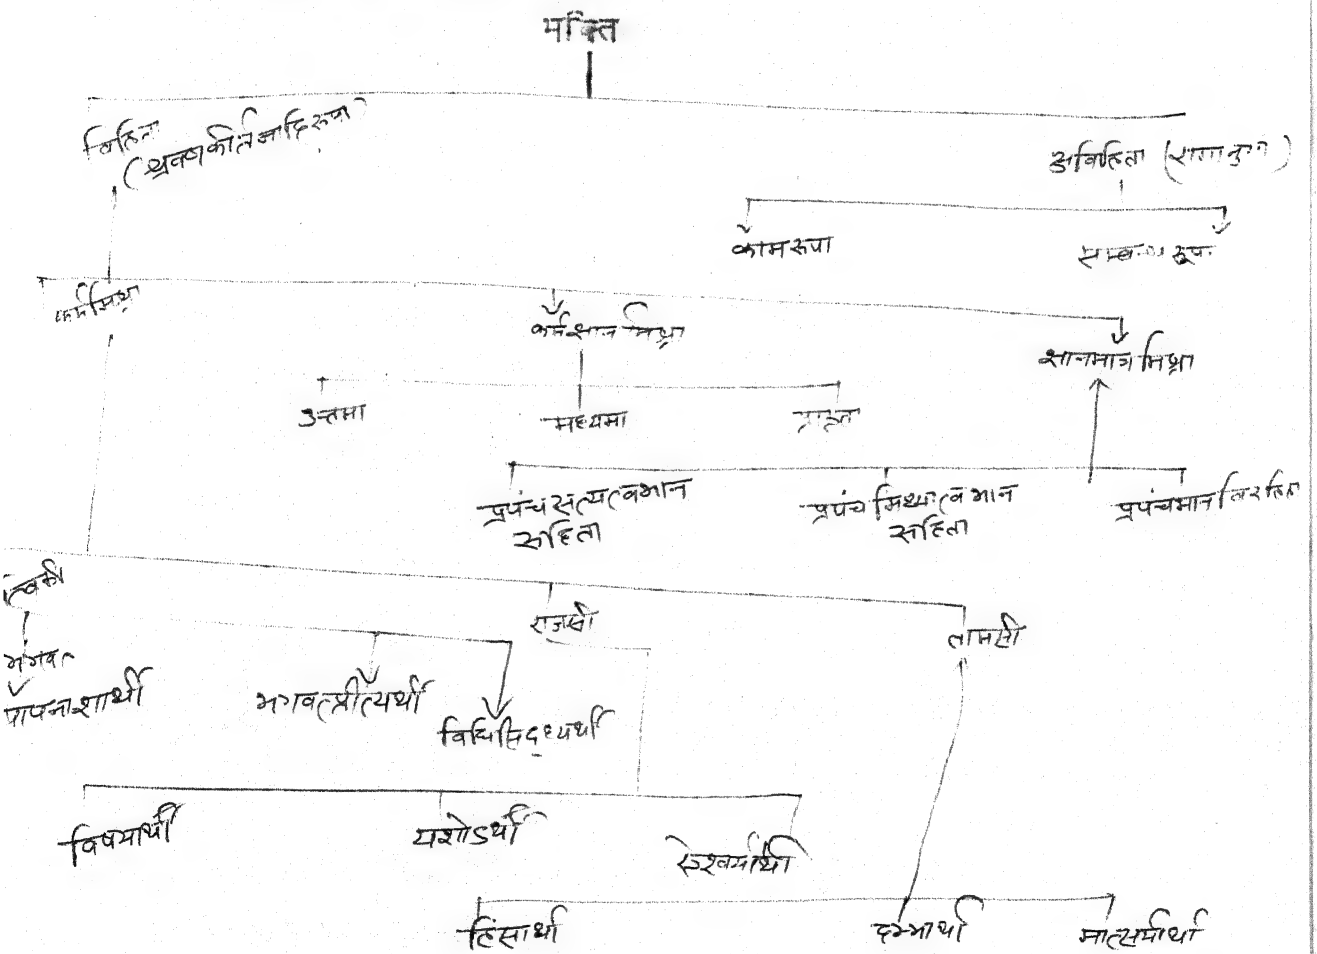 भक्ति
विहिता
(श्रवणकीर्तनादिरूपा)
अविहिता (रागानुगा)
कामरूपा
सम्बन्धरूपा
कर्ममिश्रा
कर्मज्ञानमिश्रा
ज्ञानमात्रमिश्रा
उत्तमा
मध्यमा
प्राकृत
प्रपंचसत्यत्वभान
सहिता
प्रपंच मिथ्यात्व भान
सहिता
प्रपंचभान विरहिता
त्विकी
राजसी
तामसी
भगवत
पापनाशार्था
भगवत्प्रीत्यर्था
विधिसिद्ध्यर्था
विषयार्था
यशोऽर्था
ऐश्वर्यार्था
हिंसार्था
दम्भार्था
मात्सर्यार्था